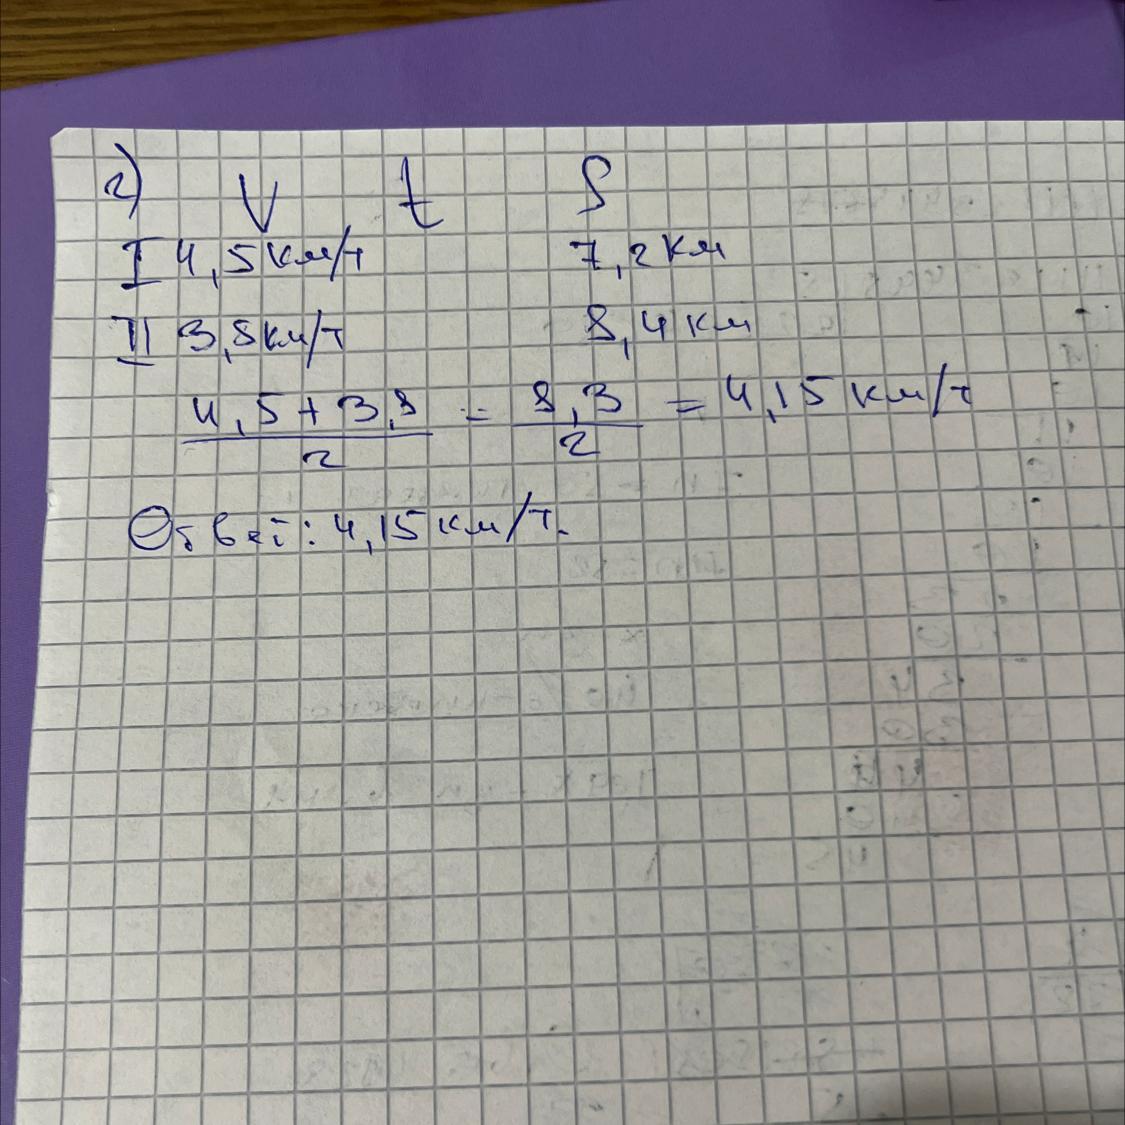 2) V t S
I 4,5 км/ч 7,2 км
II 3,8 км/ч 8,4 км
4,5+3,8 / 2 = 8,3 / 2 = 4,15 км/ч
Ответ: 4,15 км/ч.